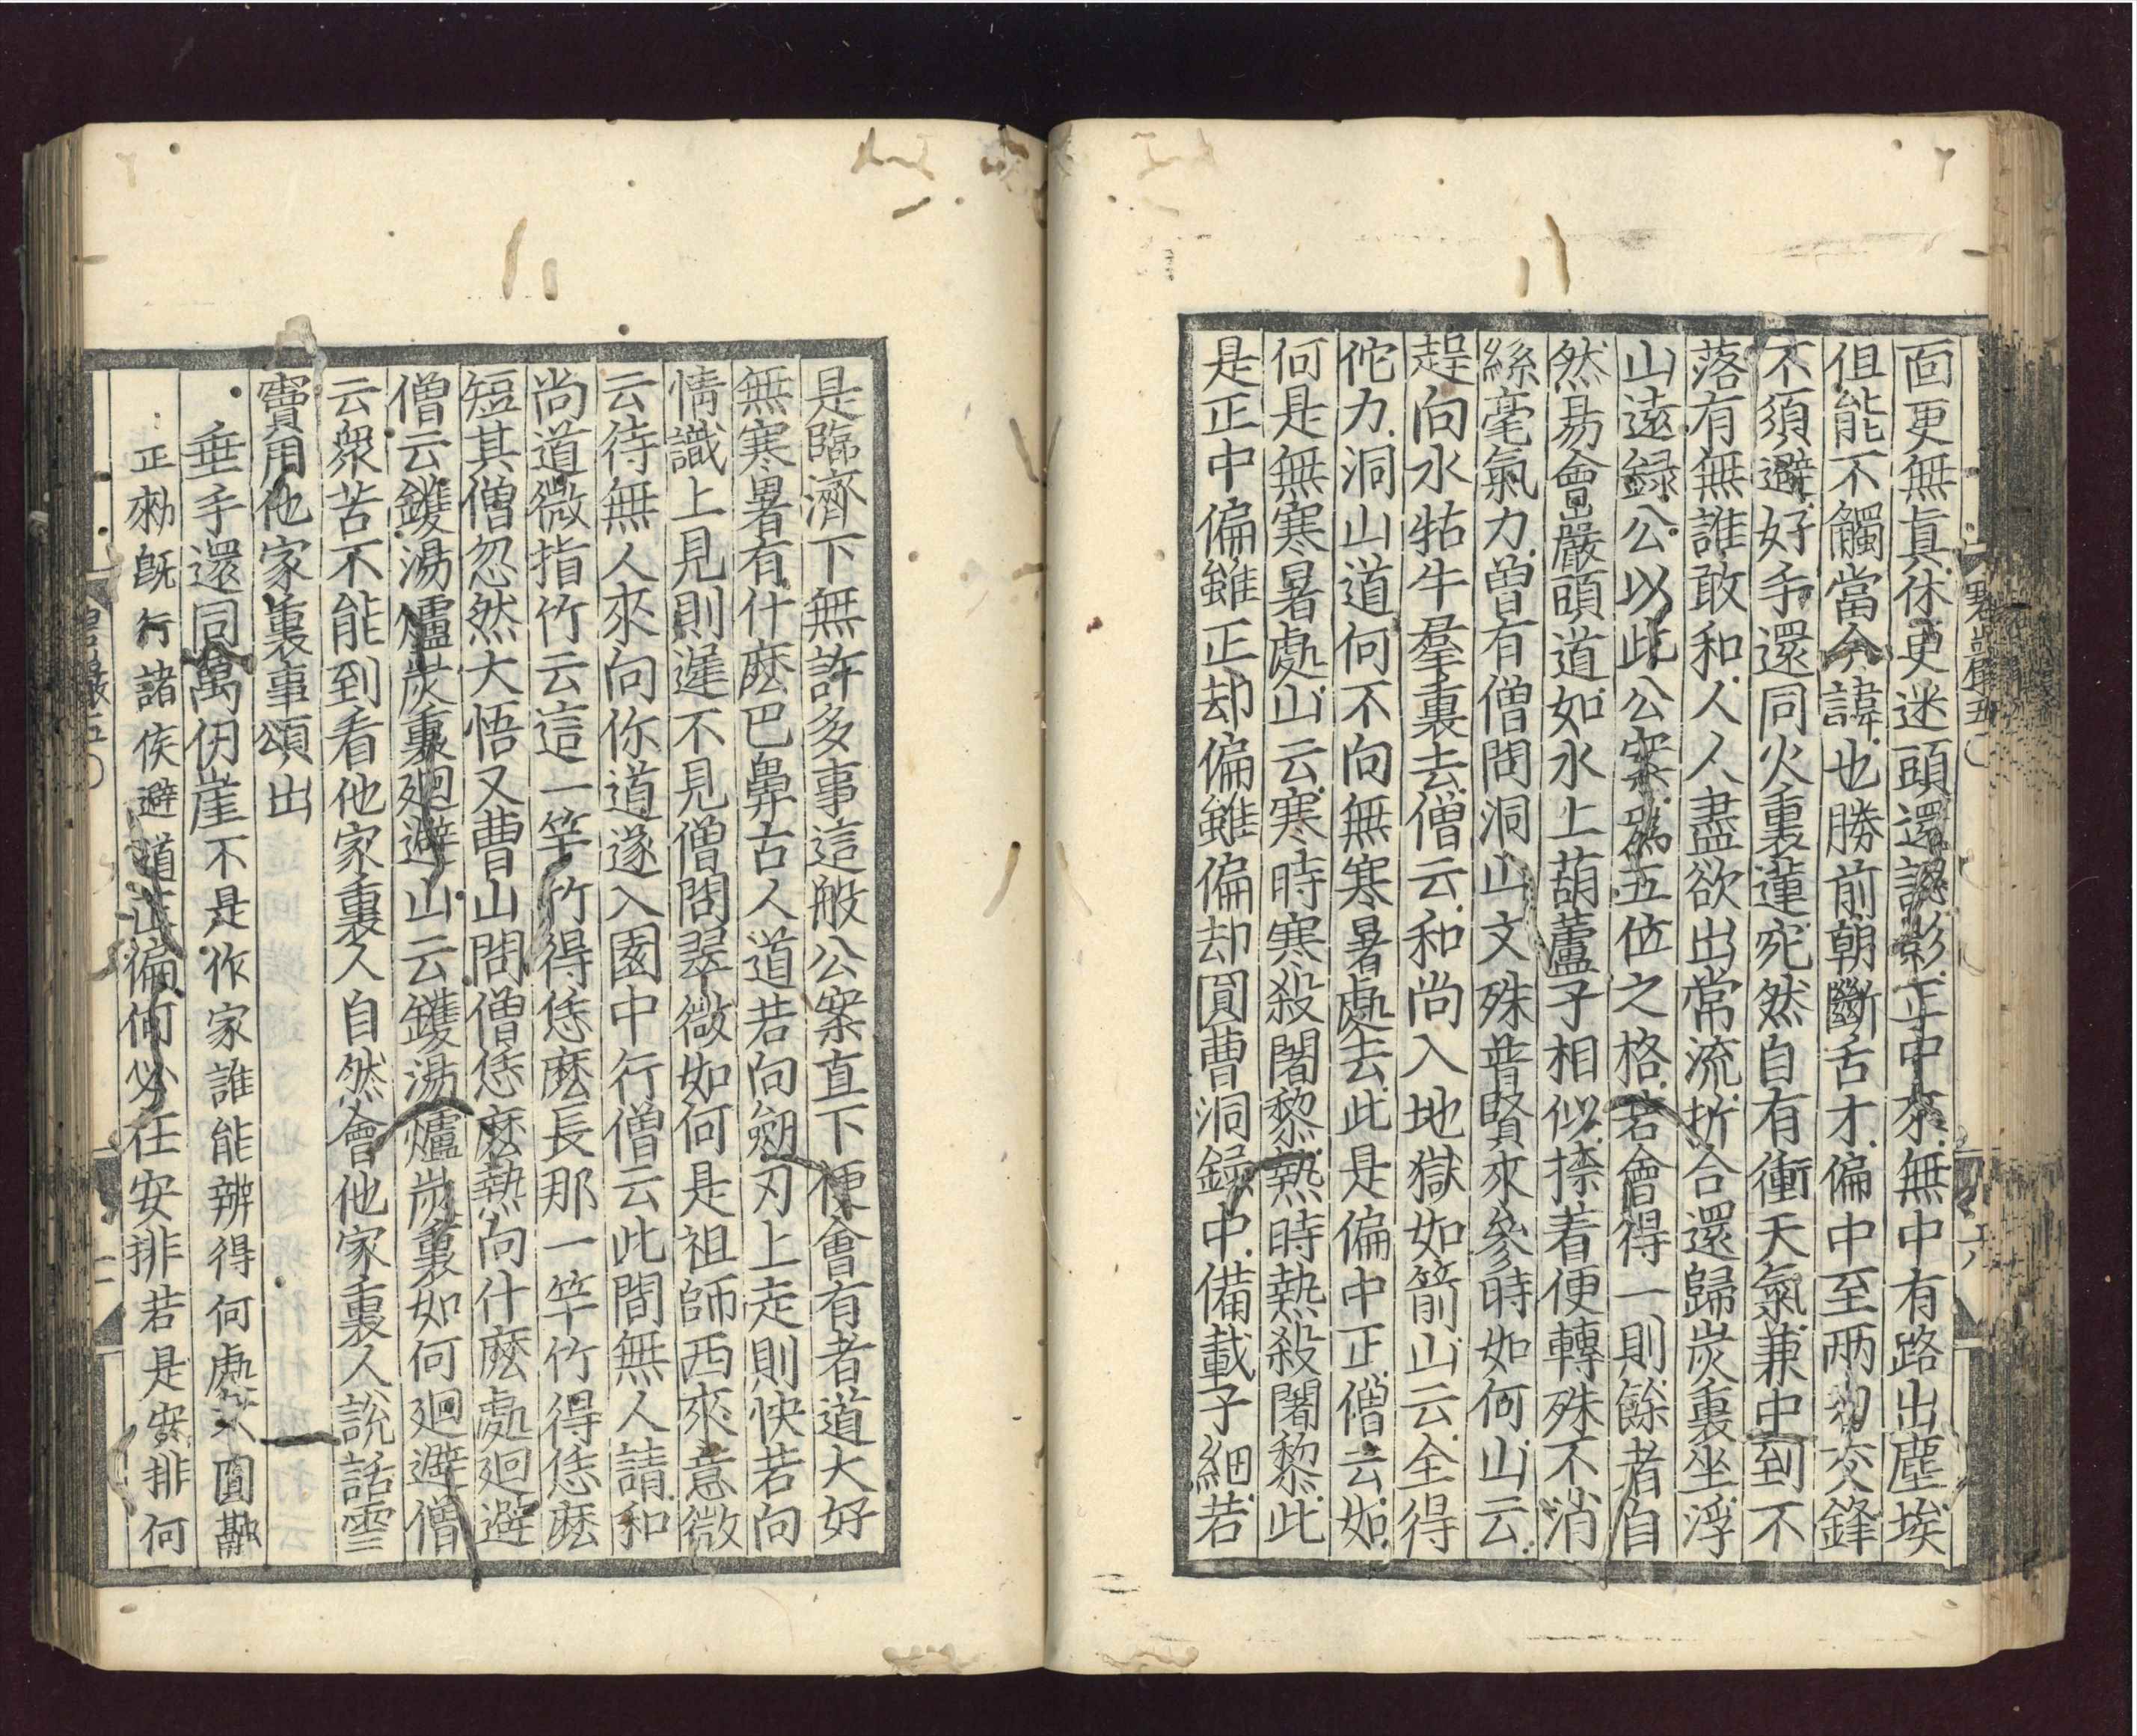 面更無真休更迷頭還認影正中來無中有路出塵埃
但能不觸當今諱也勝前朝斷舌才偏中至兩刃交鋒
不須避好手還同火裏蓮宛然自有衝天氣兼中到不
落有無誰敢和人人盡欲出常流折合還歸炭裏坐浮
山遠録公以此公案為五位之格若會得一則餘者自
然易會嵓頭道如水上葫蘆子相似捺着便轉殊不消
絲毫氣力曽有僧問洞山文殊普賢來參時如何山云
趕向水牯牛羣裏去僧云和尚入地獄如箭山云全得
佗力洞山道何不向無寒暑處去此是偏中正僧云如
何是無寒暑處山云寒時寒殺闍黎熱時熱殺闍黎此
是正中偏雖正却偏雖偏却圓曹洞録中備載子細若
是臨濟下無許多事這般公案直下便會有者道大好
無寒暑有什麽巴鼻古人道若向劒刃上走則快若向
情識上見則遲不見僧問翠微如何是祖師西來意微
云待無人來向你道遂入園中行僧云此間無人請和
尚道微指竹云這一竿竹得恁麽長那一竿竹得恁麽
短其僧忽然大悟又曹山問僧恁麽熱向什麽處迴避
僧云鑊湯爐炭裏迴避山云鑊湯爐炭裏如何迴避僧
云衆苦不能到看他家裏人自然會他家裏人說話雪
竇用他家裏事頌出
垂手還同萬仞崖不是作家誰能辨得何處不圓融
正勑既行諸侯避道正偏何必在安排若是安排何